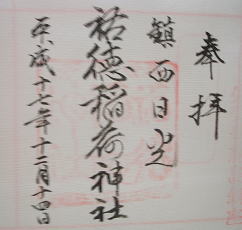 奉拝
鎮西日光
祐徳稲荷神社
平成十七年十二月十四日